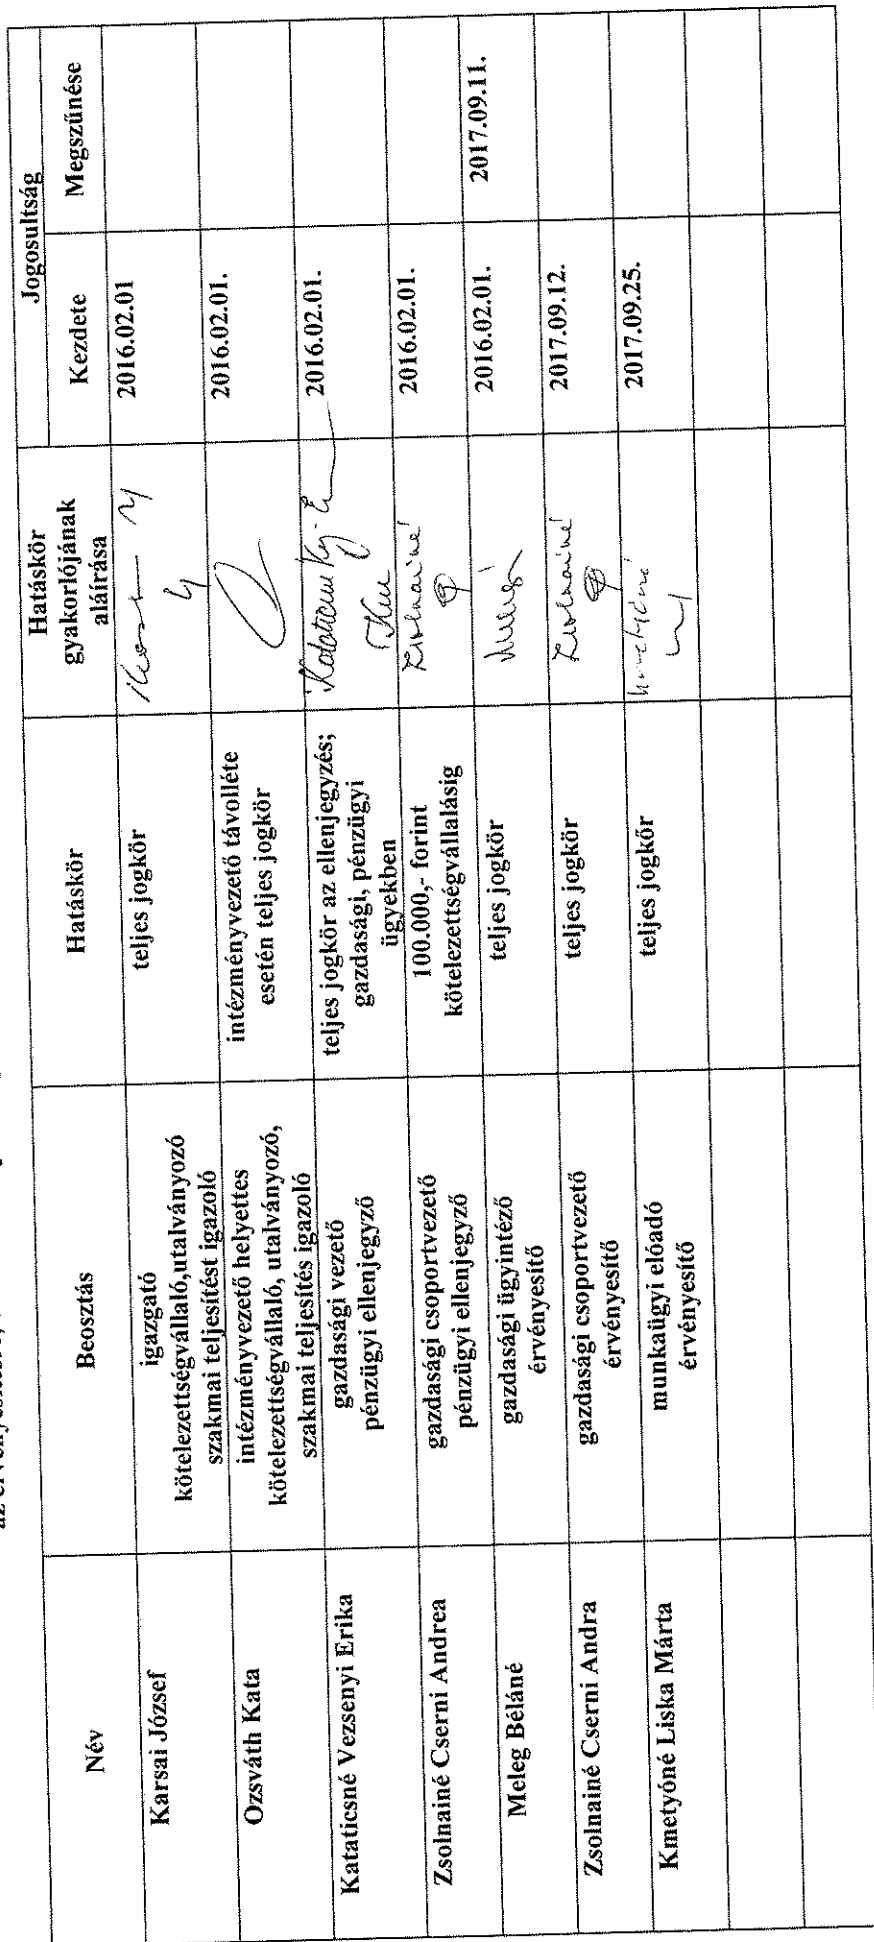 Név
Beosztás
Hatáskör
Hatáskör
gyakorlójának
aláírása
Jogosultság
Kezdete
Megszűnése
Karsai József
igazgató
kötelezettségvállaló,utalványozó
szakmai teljesítést igazoló
teljes jogkör
2016.02.01
Ozsváth Kata
intézményvezető helyettes
kötelezettségvállaló, utalványozó,
szakmai teljesítés igazoló
intézményvezető távolléte
esetén teljes jogkör
2016.02.01.
Kataticsné Vezsenyi Erika
gazdasági vezető
pénzügyi ellenjegyző
teljes jogkör az ellenjegyzés;
gazdasági, pénzügyi
ügyekben
2016.02.01.
Zsolnainé Cserni Andrea
gazdasági csoportvezető
pénzügyi ellenjegyző
100.000,- forint
kötelezettségvállalásig
Zsolnainé
2016.02.01.
Meleg Béláné
gazdasági ügyintéző
érvényesítő
teljes jogkör
2016.02.01.
2017.09.11.
Zsolnainé Cserni Andra
gazdasági csoportvezető
érvényesítő
teljes jogkör
Zsolnainé
2017.09.12.
Kmetyóné Liska Márta
munkaügyi előadó
érvényesítő
teljes jogkőr
2017.09.25.